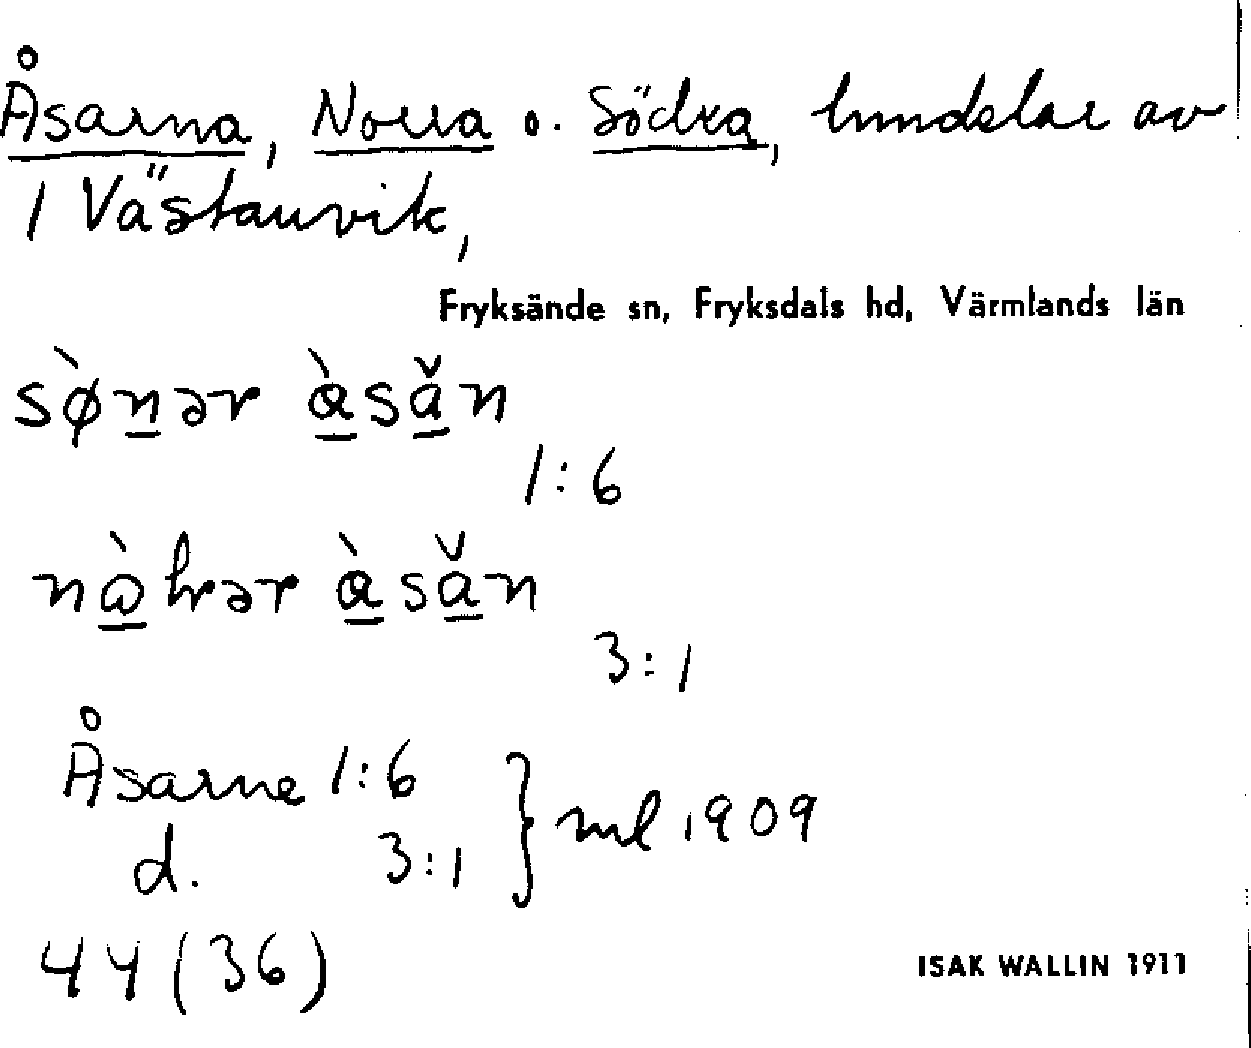 Åsarna, Norra o. Södra, hmdelar av
1 Västanvik,
Fryksände sn, Fryksdals hd, Värmlands län
sø̀nər àsǎn
1:6
nàhrər àsǎn
3:1
Åsarne 1:6
d. 3:1 } ml 1909
44 (36)
ISAK WALLIN 1911